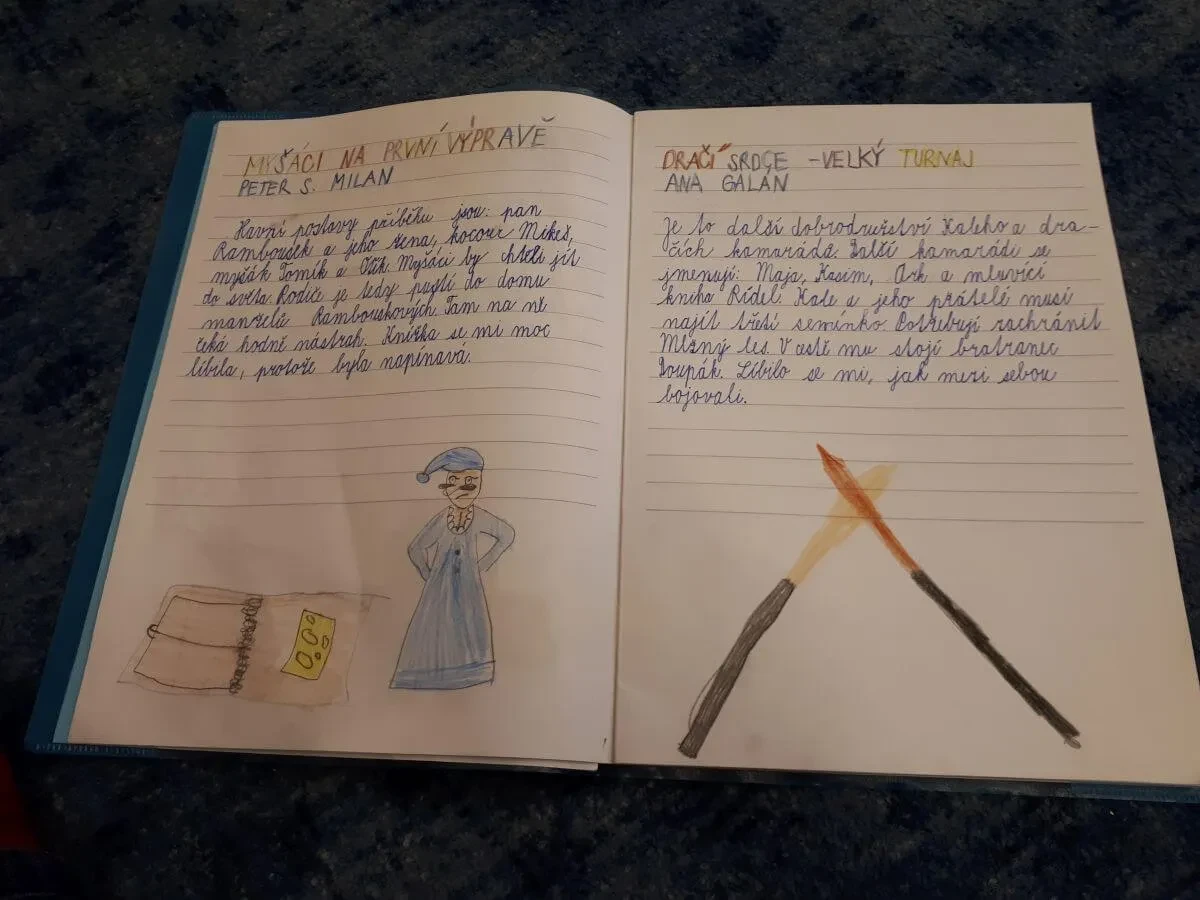 MYŠÁCI NA PRVNÍ VÝPRAVĚ
PETER S. MILAN
Havní postavy příběhu jsou: pan
Rambousek a jeho žena, kocour Mikeš,
myšák Tomík a Ošk. Myšáci by chtěli jít
do světa. Rodiče je tedy pustí do domu
manželů Rambouskových. Tam na ně
čeká hodně nástrah. Knížka se mi moc
líbila, protože byla napínavá.
DRAČÍ SRDCE - VELKÝ TURNAJ
ANA GALÁN
Je to další dobrodružství Kaleho a dra-
čích kamarádů. Další kamarádi se
jmenují: Maja, Kasim, Ork a mluvící
kniha Rídel. Kale a jeho přátelé musí
najít třetí semínko. Potřebují zachránit
Mlžný les. V cestě mu stojí bratranec
Doupák. Líbilo se mi, jak mezi sebou
bojovali.